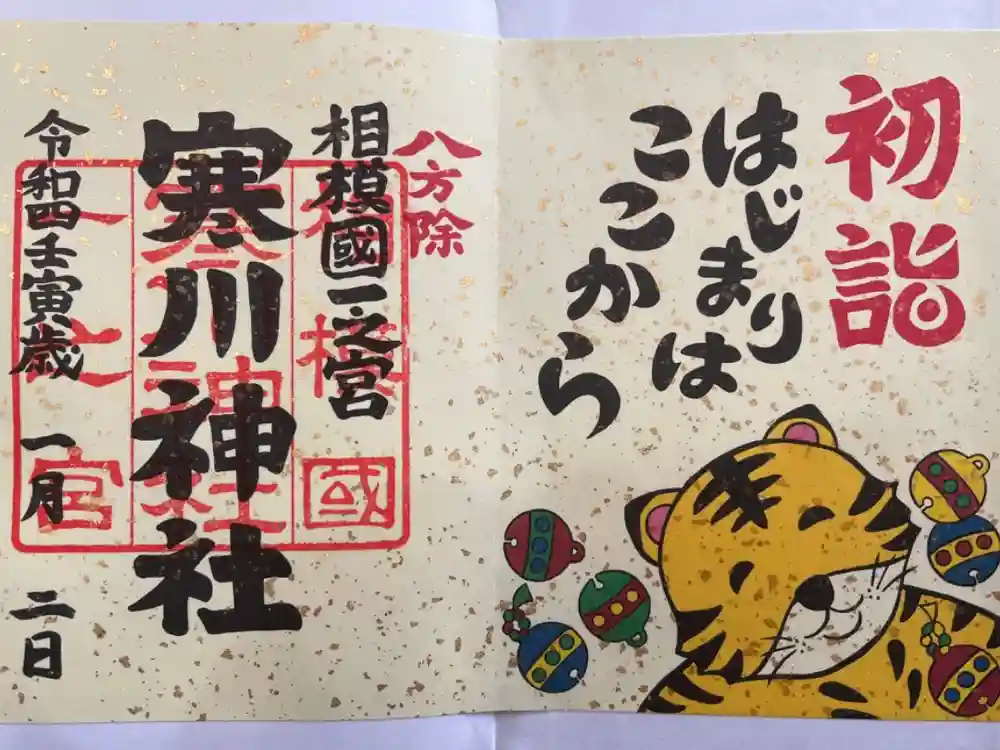 初詣
はじまりは
ここから
八方除
相模國一之宮
寒川神社
令和四壬寅歳 一月 二日